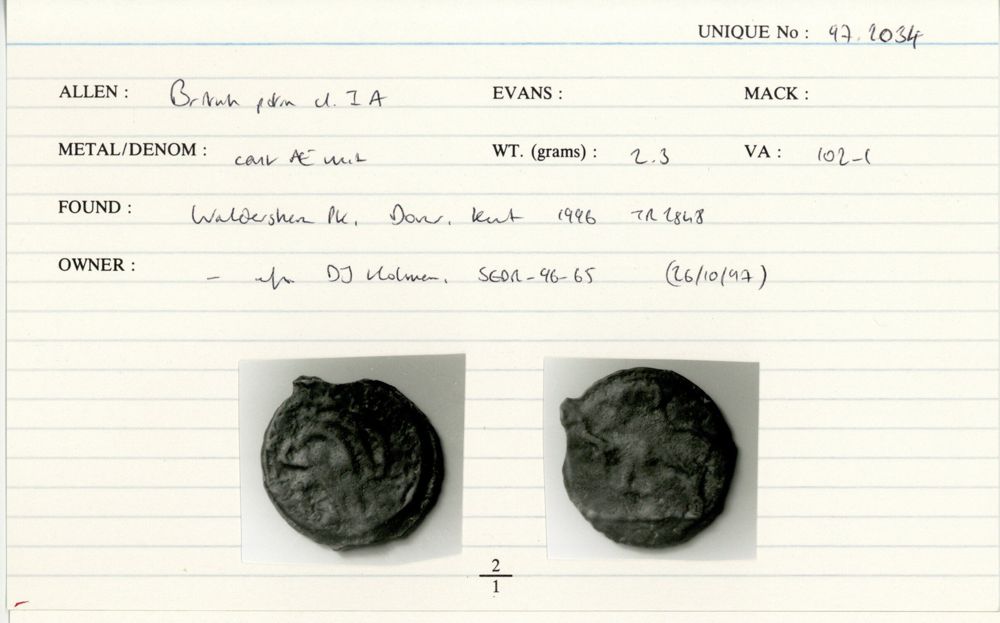 UNIQUE No : 97.2034
ALLEN : British potin cl. IA EVANS : MACK :
METAL/DENOM : cast Æ unit WT. (grams) : 2.3 VA : 102-1
FOUND : Waldershare Pk, Dover, Kent 1996 TR 2848
OWNER : – DJ Holman, SEDR-96-65 (26/10/97)
2
1